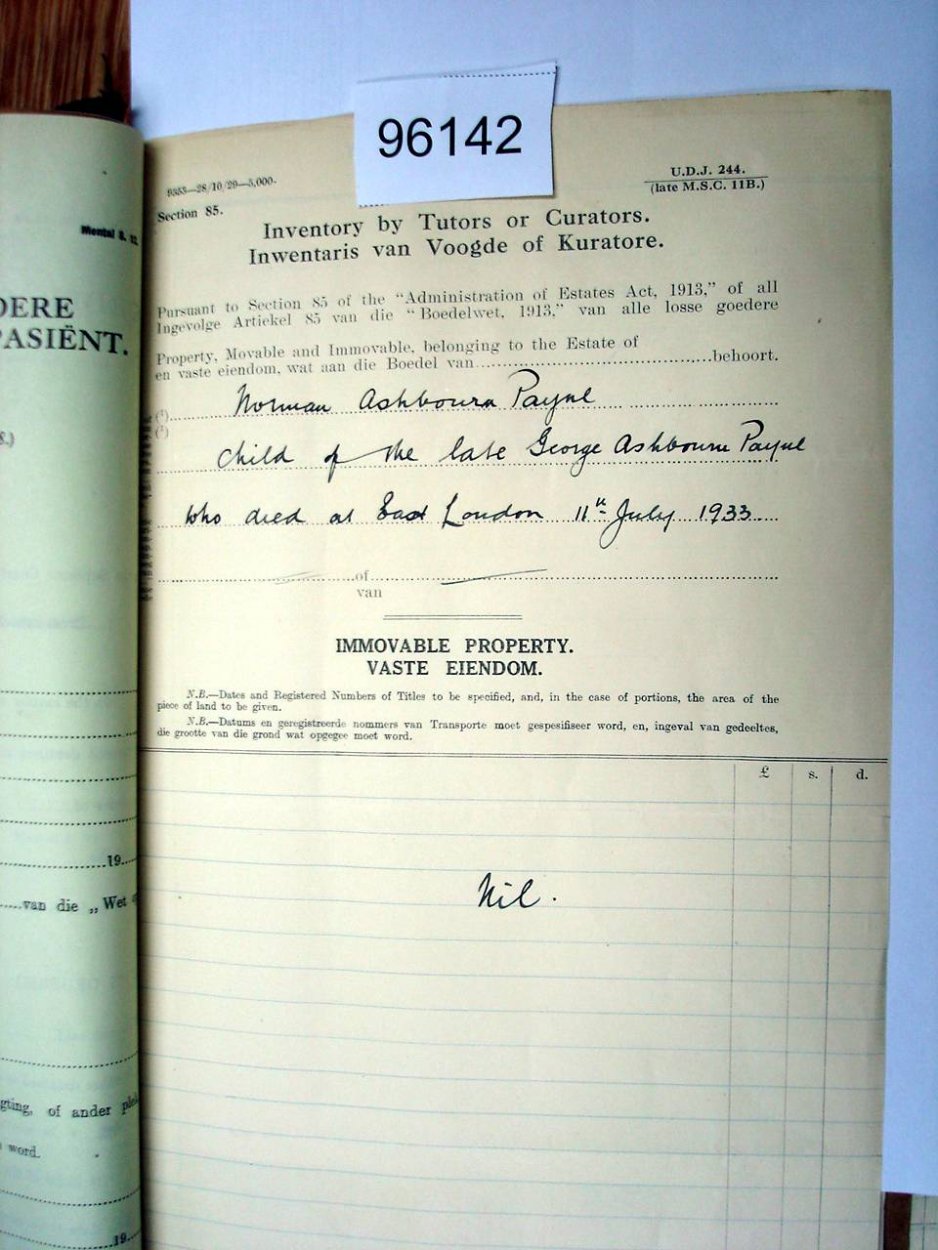 96142
9353—28/10/29—5,000.
U.D.J. 244.
(late M.S.C. 11B.)
Section 85.
Inventory by Tutors or Curators.
Inwentaris van Voogde of Kuratore.
Pursuant to Section 85 of the "Administration of Estates Act, 1913," of all
Ingevolge Artiekel 85 van die "Boedelwet, 1913," van alle losse goedere
Property, Movable and Immovable, belonging to the Estate of
en vaste eiendom, wat aan die Boedel van behoort.
(1) Norman Ashbourn Payne
(1)
child of the late George Ashbourne Payne
who died at East London 11th July 1933
of
van
IMMOVABLE PROPERTY.
VASTE EIENDOM.
N.B.—Dates and Registered Numbers of Titles to be specified, and, in the case of portions, the area of the
piece of land to be given.
N.B.—Datums en geregistreerde nommers van Transporte moet gespesifiseer word, en, ingeval van gedeeltes,
die grootte van die grond wat opgegee moet word.
£ s. d.
Nil.
Mental S. 12.
DERE
PASIËNT.
S.)
19
van die „Wet
gting, of ander
word.
19